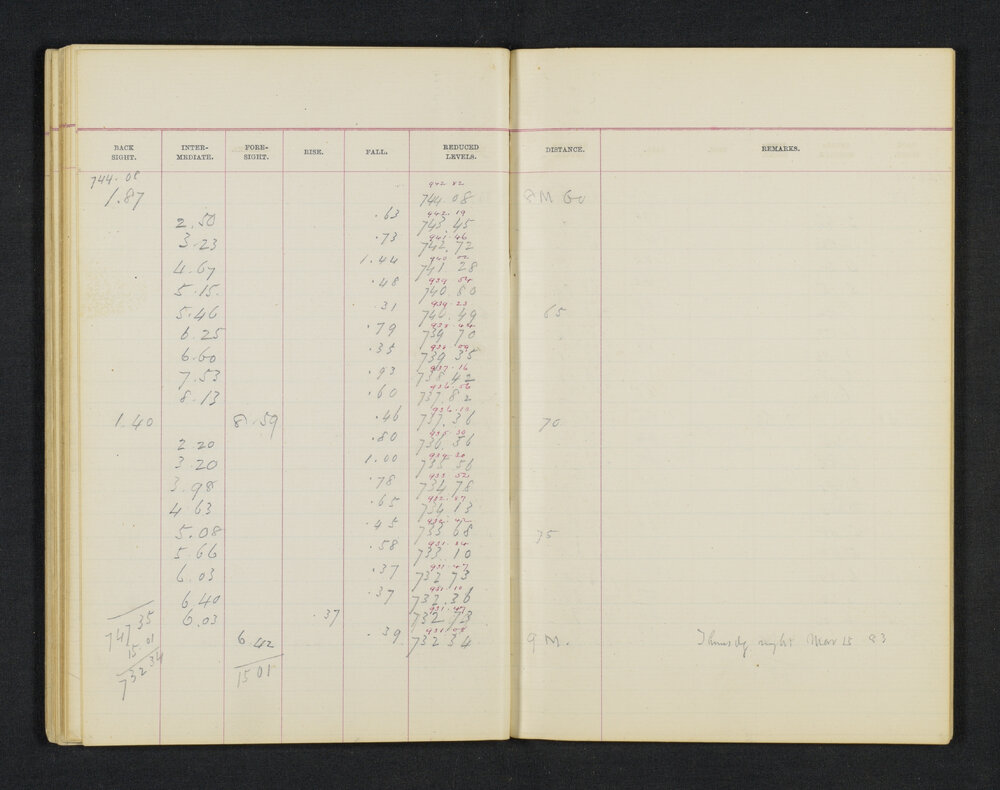 BACK SIGHT. INTER-MEDIATE. FORE-SIGHT. RISE. FALL. REDUCED LEVELS. DISTANCE. REMARKS.
744.08 942.82
1.87 744.08 8 M 60
2.50 .63 942.19 743.45
3.23 .73 941.46 742.72
4.67 1.44 940.02 741 28
5.15 .48 939.54 740.80
5.46 .31 939.23 740.49 65
6.25 .79 938.44 739 70
6.60 .35 938.09 739 35
7.53 .93 937.16 738 42
8.13 .60 936.56 737.82
1.40 8.59 .46 936.10 737.36 70
2.20 .80 935.30 736.56
3.20 1.00 934.30 735 56
3.98 .78 933.52 734 78
4.63 .65 932.87 734 13
5.08 .45 932.42 733 68 75
5.66 .58 931.84 733 10
6.03 .37 931.47 732 73
6.40 .37 931.10 732.36
6.03 .37 931.47 732 73
747 35 6.42 .39 931.08 732 34 9 M. Thursdy night Mar 15 83
15.01 15 01
732 34